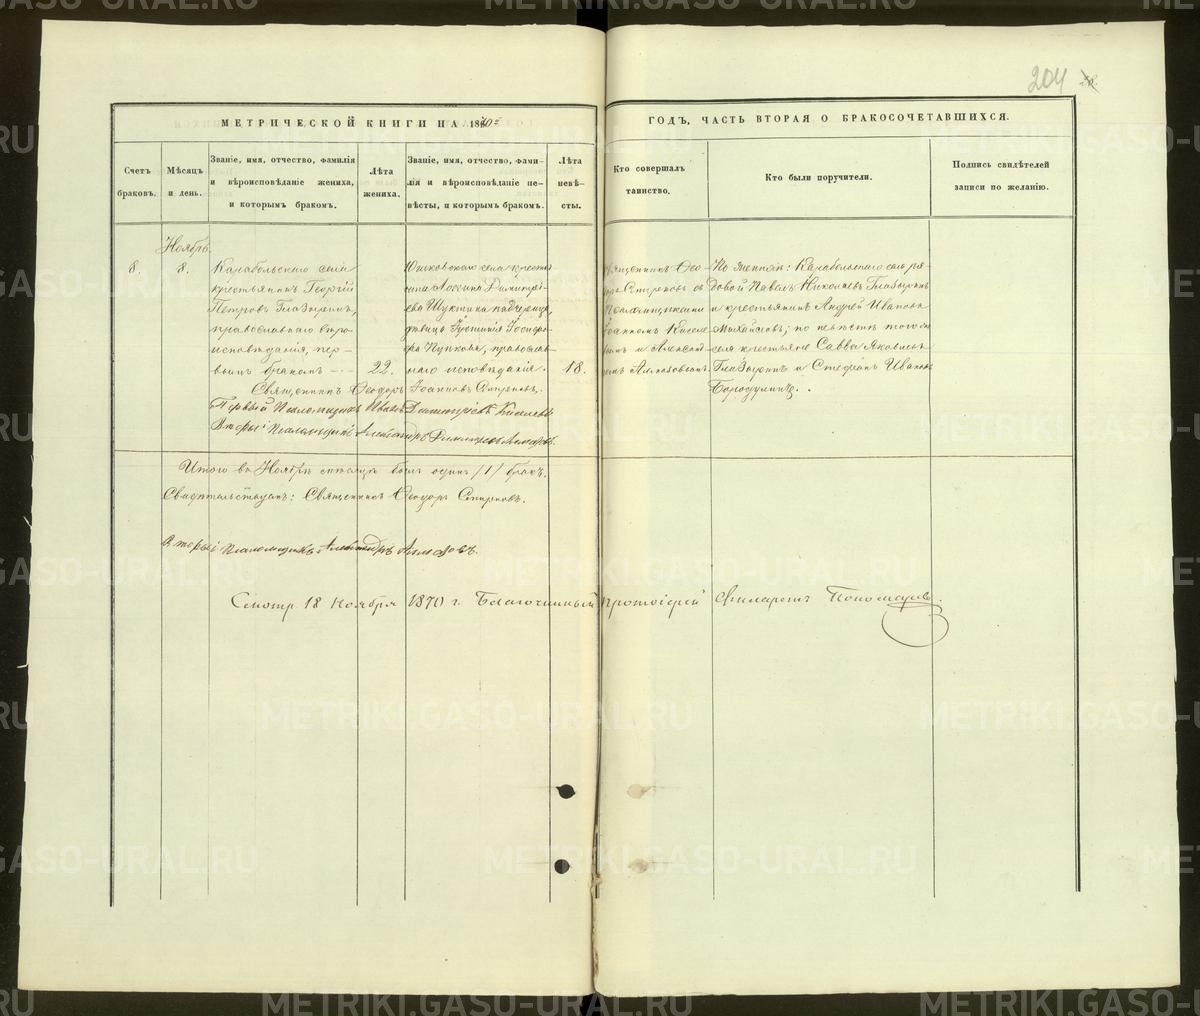 204
МЕТРИЧЕСКОЙ КНИГИ НА 1870й
ГОДЪ, ЧАСТЬ ВТОРАЯ О БРАКОСОЧЕТАВШИХСЯ.
Счетъ браковъ.
Мѣсяцъ и день.
Званіе, имя, отчество, фамилія
и вѣроисповѣданіе жениха,
и которымъ бракомъ.
Лѣта жениха.
Званіе, имя, отчество, фами-
лія и вѣроисповѣданіе не-
вѣсты, и которымъ бракомъ.
Лѣта невѣ-
сты.
Кто совершалъ
таинство.
Кто были поручители.
Подпись свидѣтелей
записи по желанію.
Ноябрь.
8.
8.
Карабольскаго села
крестьянинъ Георгій
Петровъ Глазыринъ,
православнаго вѣро-
исповѣданія, пер-
вымъ бракомъ
22.
села кресть-
Димитрі-
ева падчерица,
дѣвица Іустинія
православ-
наго исповѣданія.
18.
Священникъ Ѳео-
доръ Смирновъ съ
Псаломщиками
Іоанномъ Киселе-
вымъ и Александ-
ромъ Алмазовымъ.
По женихѣ: Карабольскаго села ря-
довой Павелъ Николаевъ Глазыринъ
и крестьянинъ Андрей Ивановъ
по невѣстѣ того же
села крестьяне Савва Яковлевъ
Глазыринъ и Стефанъ Ивановъ
Бородулинъ.
Священникъ Ѳеодоръ Іоанновъ Смирновъ.
Первый Псаломщикъ Иванъ Димитріевъ Киселевъ
Вторый Псаломщикъ Александръ Димитріевъ Алмазовъ.
Итого въ Ноябрѣ мѣсяцѣ былъ одинъ /1/ бракъ.
Священникъ Ѳеодоръ Смирновъ.
Вторый Псаломщикъ Александръ Алмазовъ.
Смотр. 18 Ноября 1870 г. Благочинный Протоіерей Филаретъ Пономаревъ.
METRIKI.GASO-URAL.RU